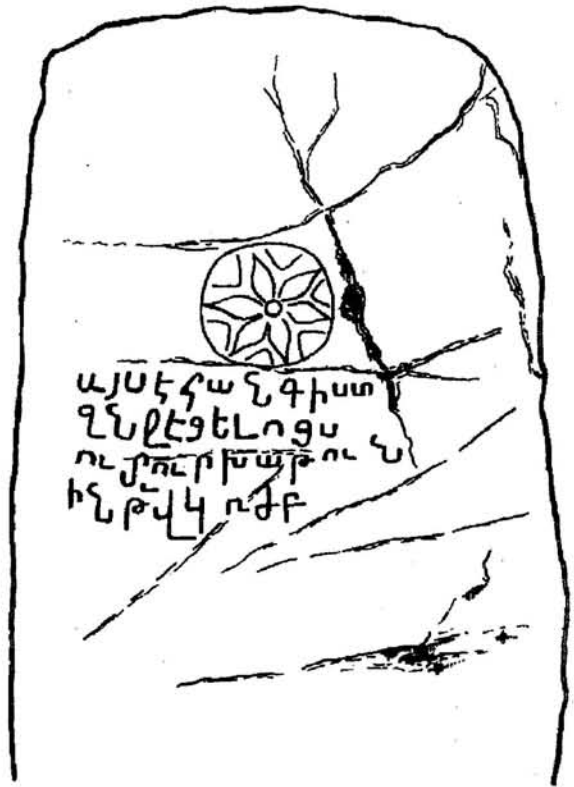 այս է հանգիստ
ննջեցելոցս
ու մուրխաթուն
ին թվկ ռժբ